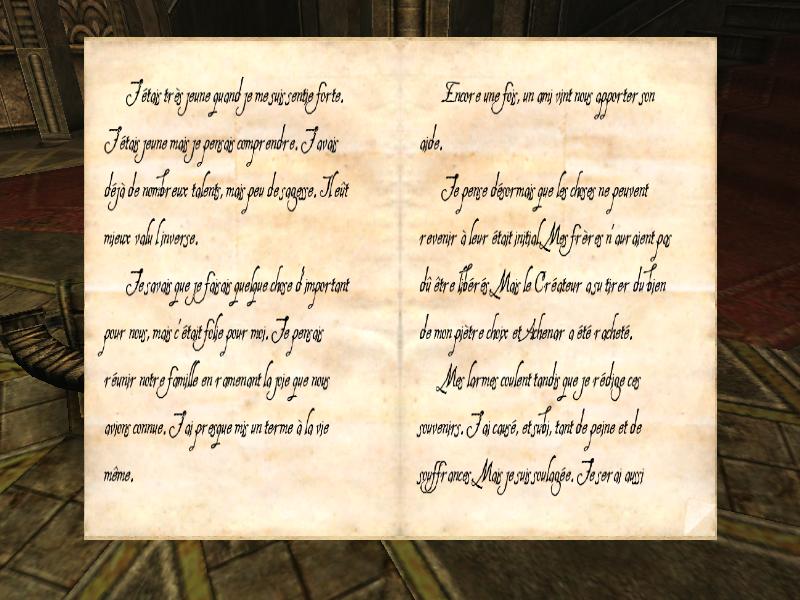 J'étais très jeune quand je me suis sentie forte.
J'étais jeune mais je pensais comprendre. J'avais
déjà de nombreux talents, mais peu de sagesse. Il eût
mieux valu l'inverse.
Je savais que je faisais quelque chose d'important
pour nous, mais c'était folie pour moi. Je pensais
réunir notre famille en ramenant la joie que nous
avions connue. J'ai presque mis un terme à la vie
même.
Encore une fois, un ami vint nous apporter son
aide.
Je pense désormais que les choses ne peuvent
revenir à leur état initial. Mes frères n'auraient pas
dû être libérés. Mais le Créateur a su tirer du bien
de mon piètre choix et Achenar a été racheté.
Mes larmes coulent tandis que je rédige ces
souvenirs. J'ai causé, et subi, tant de peine et de
souffrances. Mais je suis soulagée. Je serai aussi